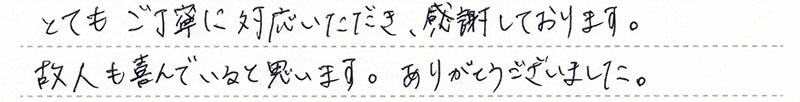 とてもご丁寧に対応いただき、感謝しております。
故人も喜んでいると思います。ありがとうございました。